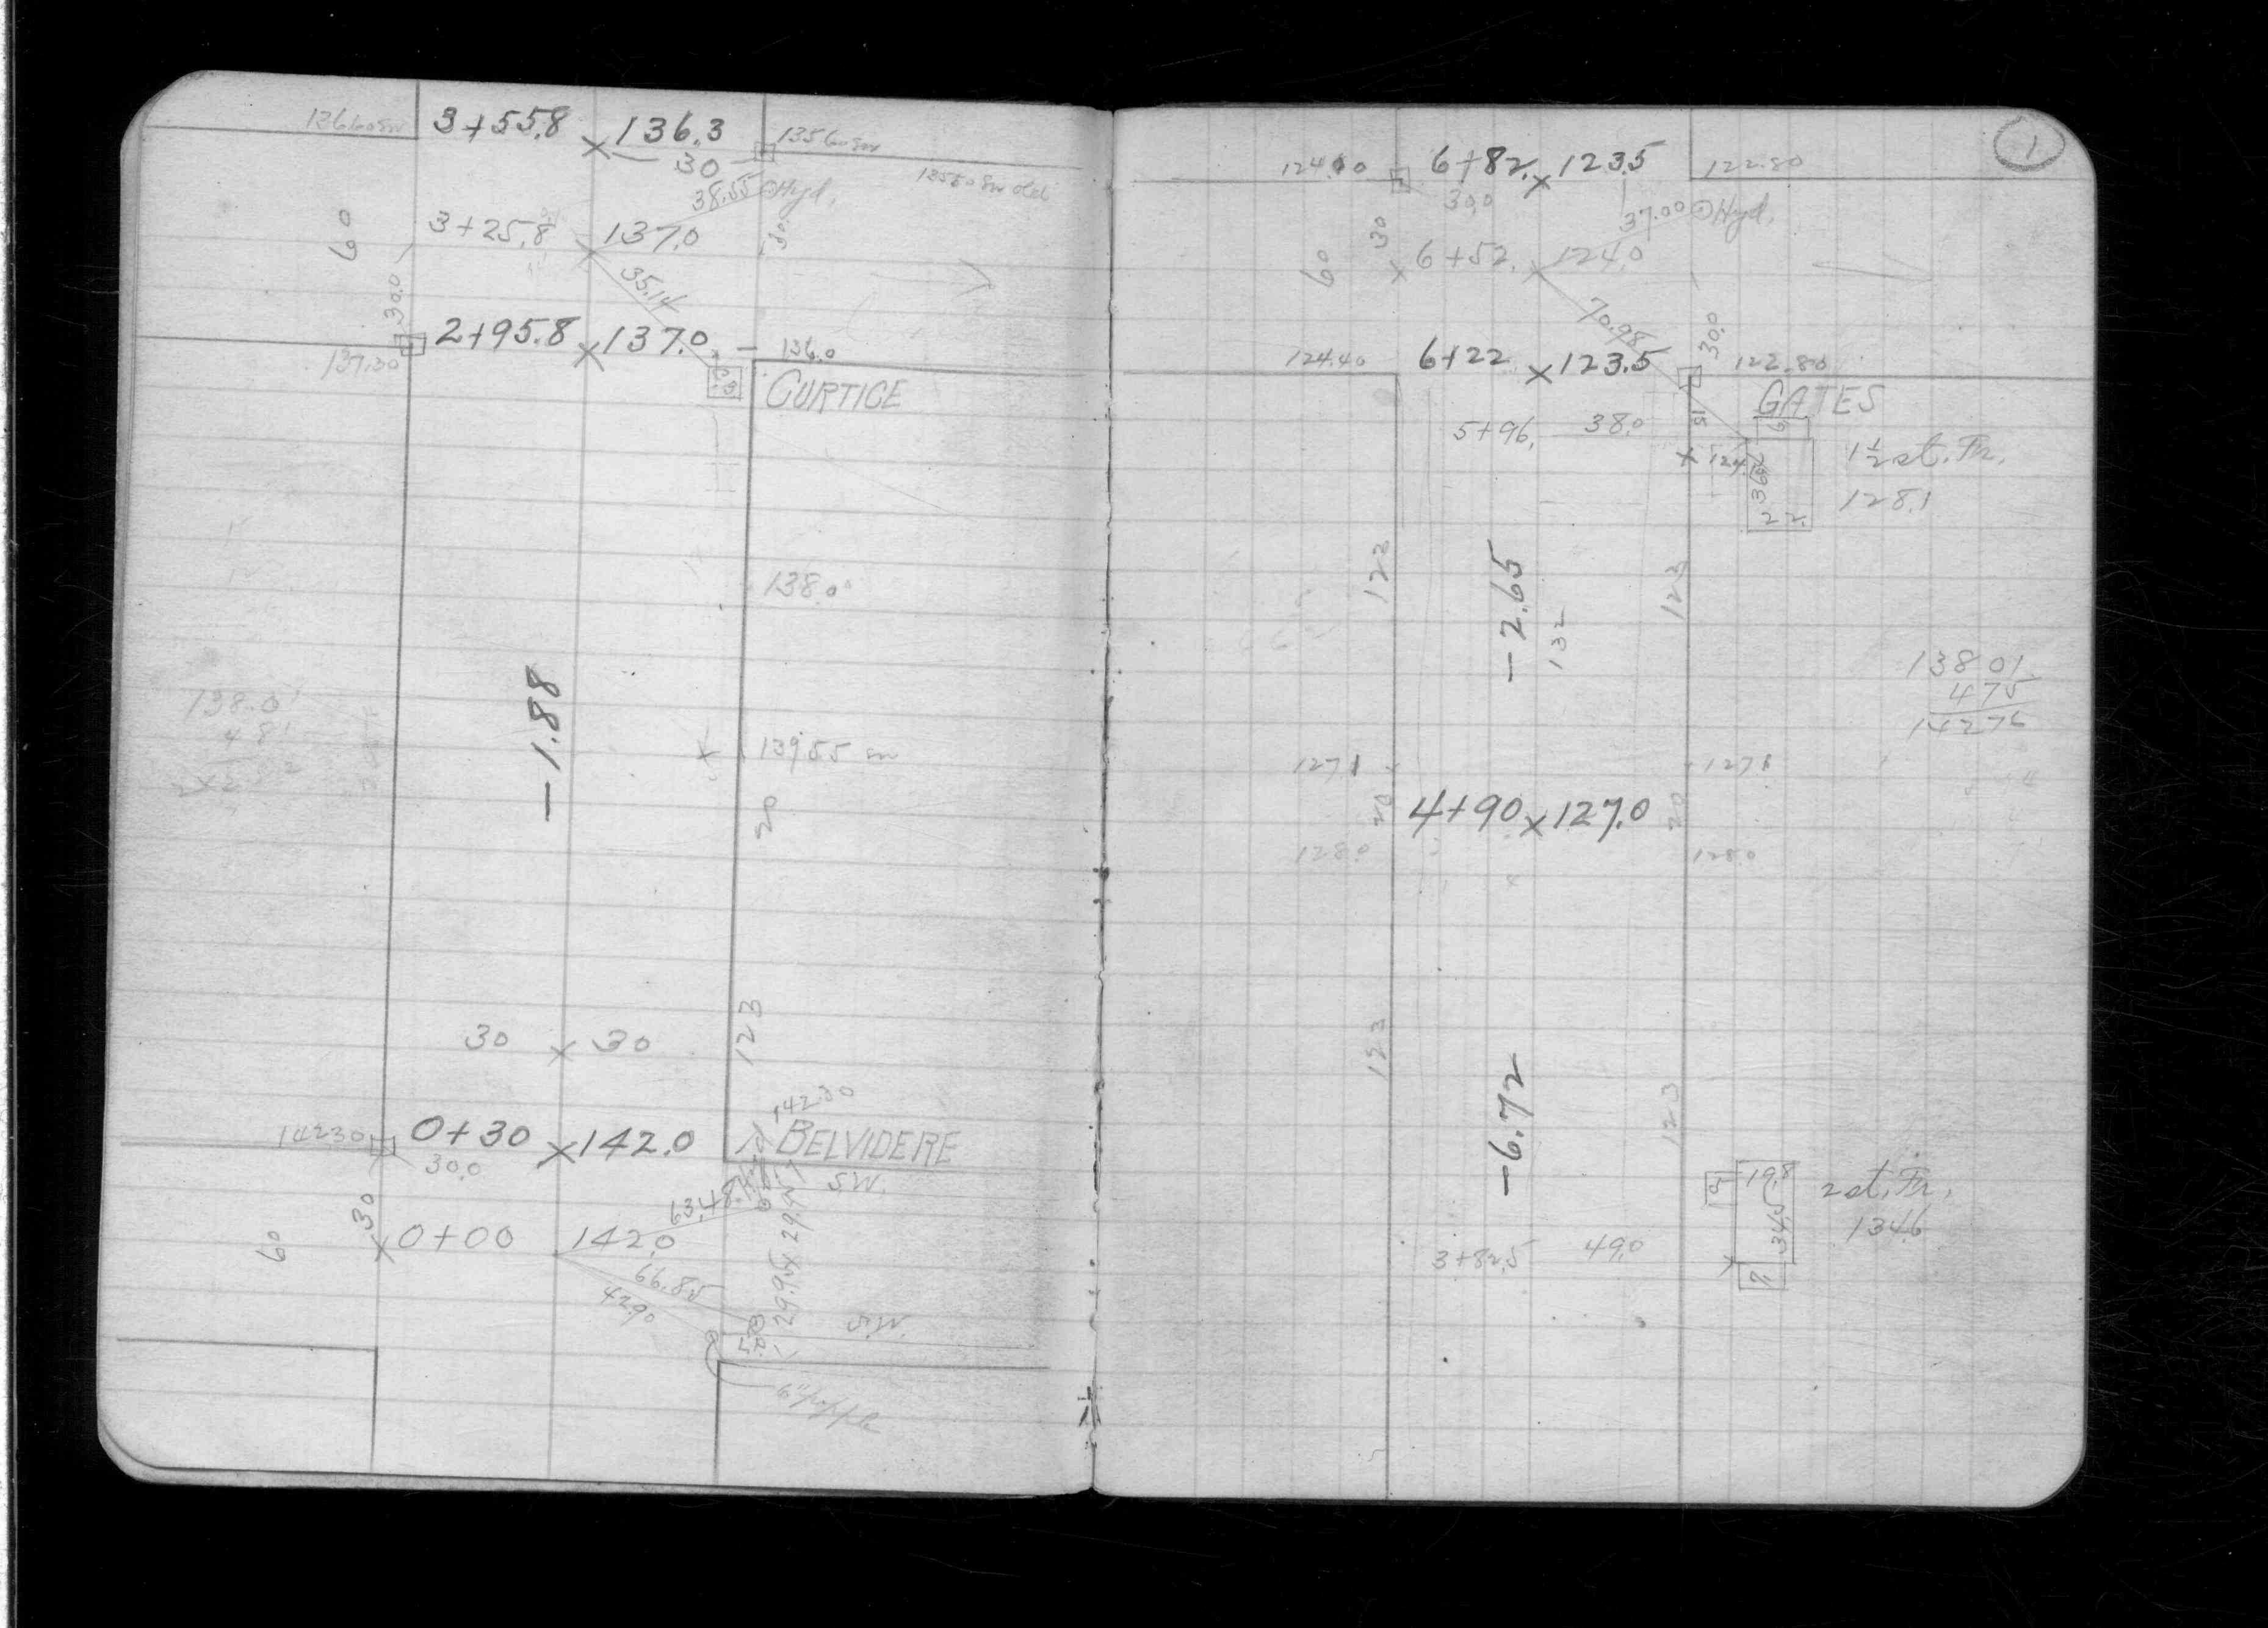 3+55.8 × 136.3
30
38.55 Hyd.
60
3+25.8 137.0
30.0
35.14
2+95.8 × 137.0 - 136.0
137.30
CURTICE
138.0
-1.88
20
123
30 × 30
142.30
142.30 0+30 × 142.0 BELVIDERE
30.0
S.W.
63.48
30
60
0+00 142.0
66.85
42.90
S.W.
1
124.40 6+82. × 123.5 122.80
30.0
37.00 Hyd.
30
60
6+52. 124.0
70.98
30.0
124.40 6+22 × 123.5 122.80
GATES
15
5+96. 38.0
1½ st. Fr.
128.1
22.
123
-2.65
132
123
138 01
4 75
142 76
127.1 127.1
20 4+90 × 127.0 20
128.0 128.0
123
-6.72
123
19.8
34.5
2 st. Fr.
134.6
3+82.5 49.0